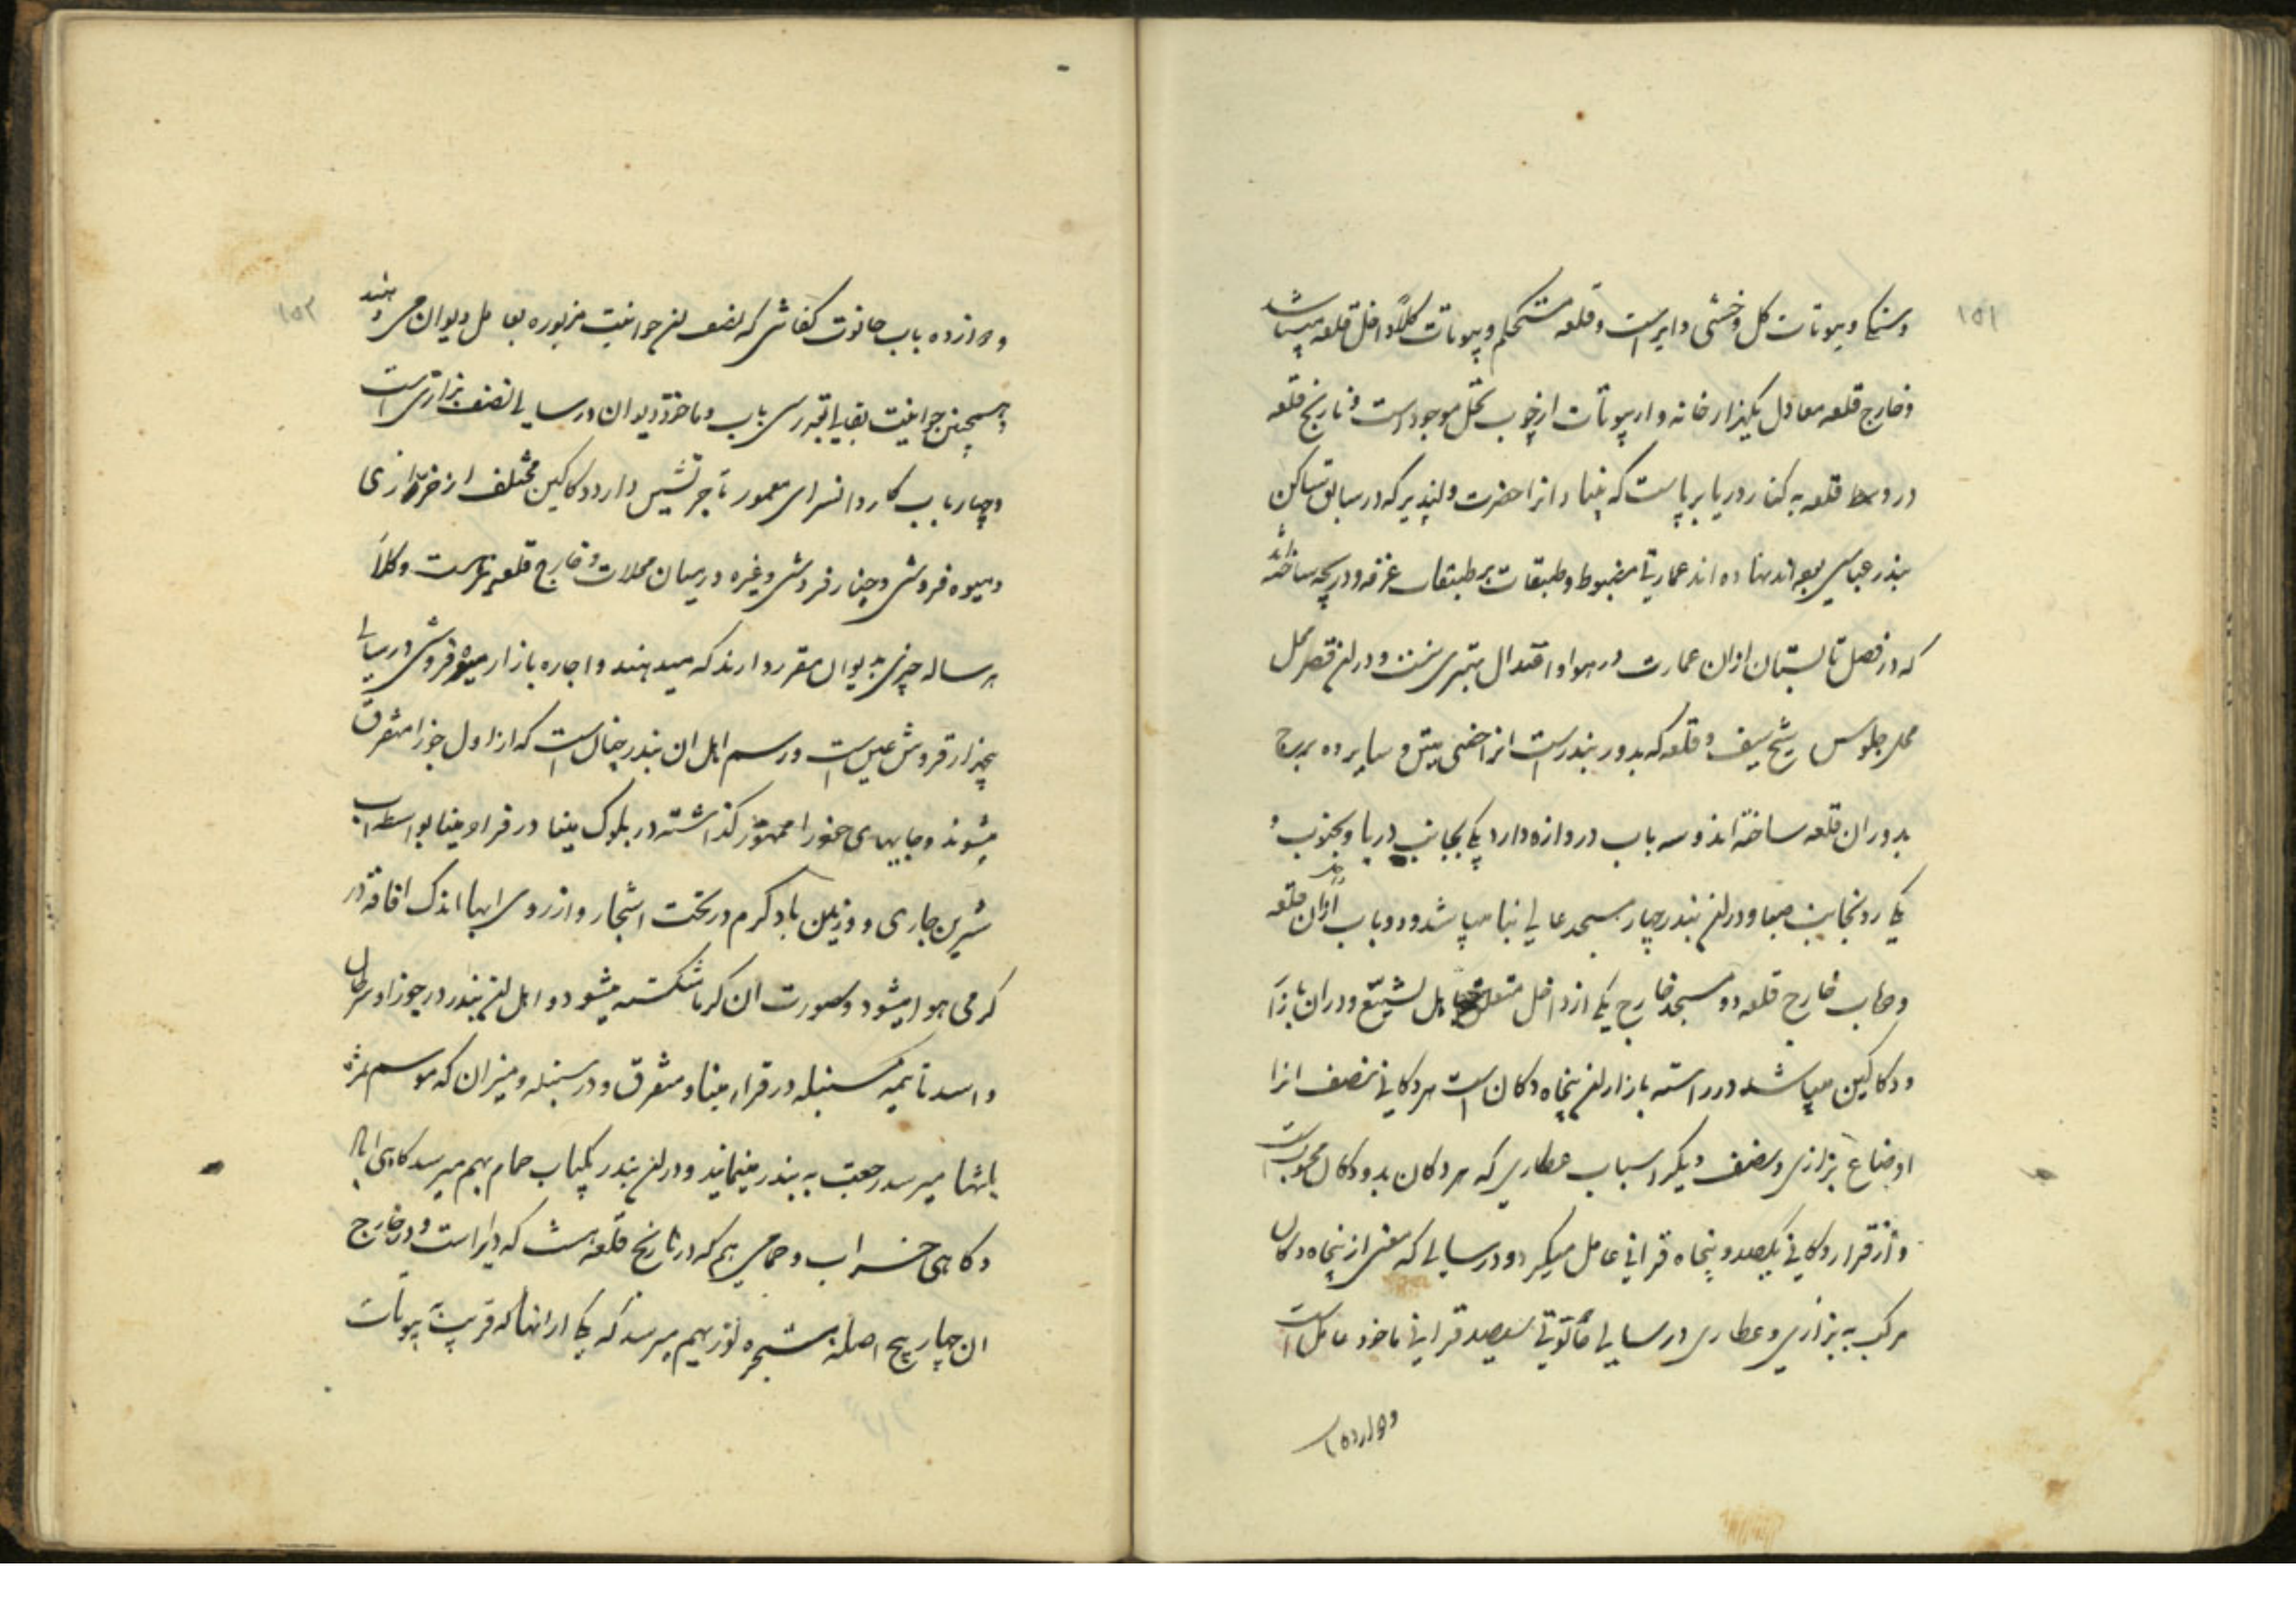 ۱۵۱
و سنگی و بیوتات گل و خشتی دایر است و قلعه مستحکم و بیوتات کلاً داخل قلعه میباشد
و خارج قلعه معادل یکهزار خانه وار بیوتات از چوب نخل موجود است و خارج قلعه
در وسط قلعه به کنار دریا برپاست که بنیاد انرا حضرت که در سابق ساکن
بندر عباسی بوده اند نهاده اند عمارتی مضبوط و طبقات بر طبقات غرفه و دریچه ساخته اند
که در فصل تابستان ازان عمارت در هوا و اعتدال بهتری نیست و در این قصر محل
محل جلوس شیخ سیف و قلعه که بدور بندر است انرا خشتی و سایر ده برج
بدوران قلعه ساخته اند و سه باب دروازه دارد یکی بجانب دریا و بجنوب و
یکی رو بجانب صبا و در این بندر چار مسجد عالی بنا میباشد و دو باب ازان قلعه
و خارج قلعه دو مسجد خارج یکی از داخل متعلق باهل تشیع و دران بازار
و دکاکین میباشد در راسته بازار این پنجاه دکان است هر دکانی نصف انرا
اوضاع بزازی و نصف دیگر اسباب عطاری که هر دکان بدو دکان محسوب است
و از قرار دکانی یکصد و پنجاه قرانی عامل میگیرد و در سالی که از پنجاه دکان
مرکب به بزازی و عطاری در سالی قرانی ماخوذ عامل است
و دوازده باب
۱۵۲
و دوازده باب حانوت کفاشی که نصف این حوانیت مزبوره بعامل دیوان می دهند
و همچنین حوانیت بقالی سی باب و ماخوذ دیوان در سالی نصف بزازی است
و چار باب کاروانسرای معمور تاجر نشین دارد و دکاکین مختلف از خرازی
و میوه فروشی و خیار فروشی و غیره در میان محلات و خارج قلعه است و کلاً
هر ساله چیزی بدیوان مقرر دارند که میدهند و اجاره بازار میوه فروشی در سالی
پنجهزار قروش عین است و رسم اهل ان بندر چنان است که از اول جوزا متفرق
میشوند و جایهای خود را گذاشته در بلوک مینا در قراء مینا بواسطه اب
شیرین جاری و وزیدن باد گرم در تحت اشجار و از روی ابها اندک افاقه در
گرمی هوا میشود و صورت ان گرما شکسته میشود و اهل این بندر در جوزا و سرطان
و اسد تا نیمه سنبله در قراء مینا و متفرق و در سنبله و میزان که موسم
بانتها میرسد رجعت به بندر مینمایند و در این بندر یکباب حمام بهم میرسد گاهی
و گاهی خراب و حمامی هم که در خارج قلعه هست که دایر است و در خارج
ان چهار پنج اصله شجره لوز بهم میرسد که یکی از انها که قریب بیوتات